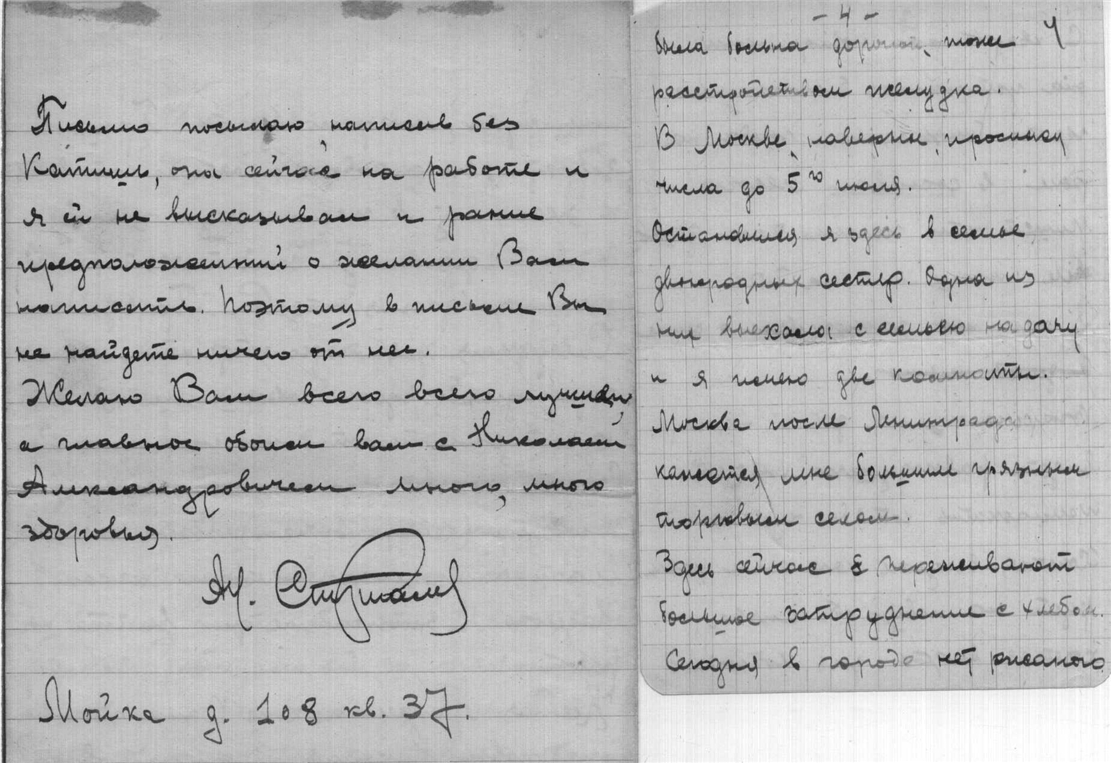 Письмо посылаю написав без
Катюши, она сейчас на работе и
я ей не высказывал и ранее
предположений о желании Вам
написать. Поэтому в письме Вы
не найдете ничего от нее.
Желаю Вам всего всего лучшего,
а главное обоим вам с Николаем
Александровичем много, много
здоровья.
Мойка д. 108 кв. 37.
- 4 -
4
была больна дорогой, тоже
расстройством желудка.
В Москве, наверны,
числа до 5го июля.
Остановился я здесь в семье
двоюродных сестер. Одна из
них выехала с семьею на дачу
и я имею две комнаты.
Москва после Ленинграда
кажется мне большим грязным
торговым селом.
Здесь сейчас переживают
большое затруднение с хлебом.
Сегодня в городе нет